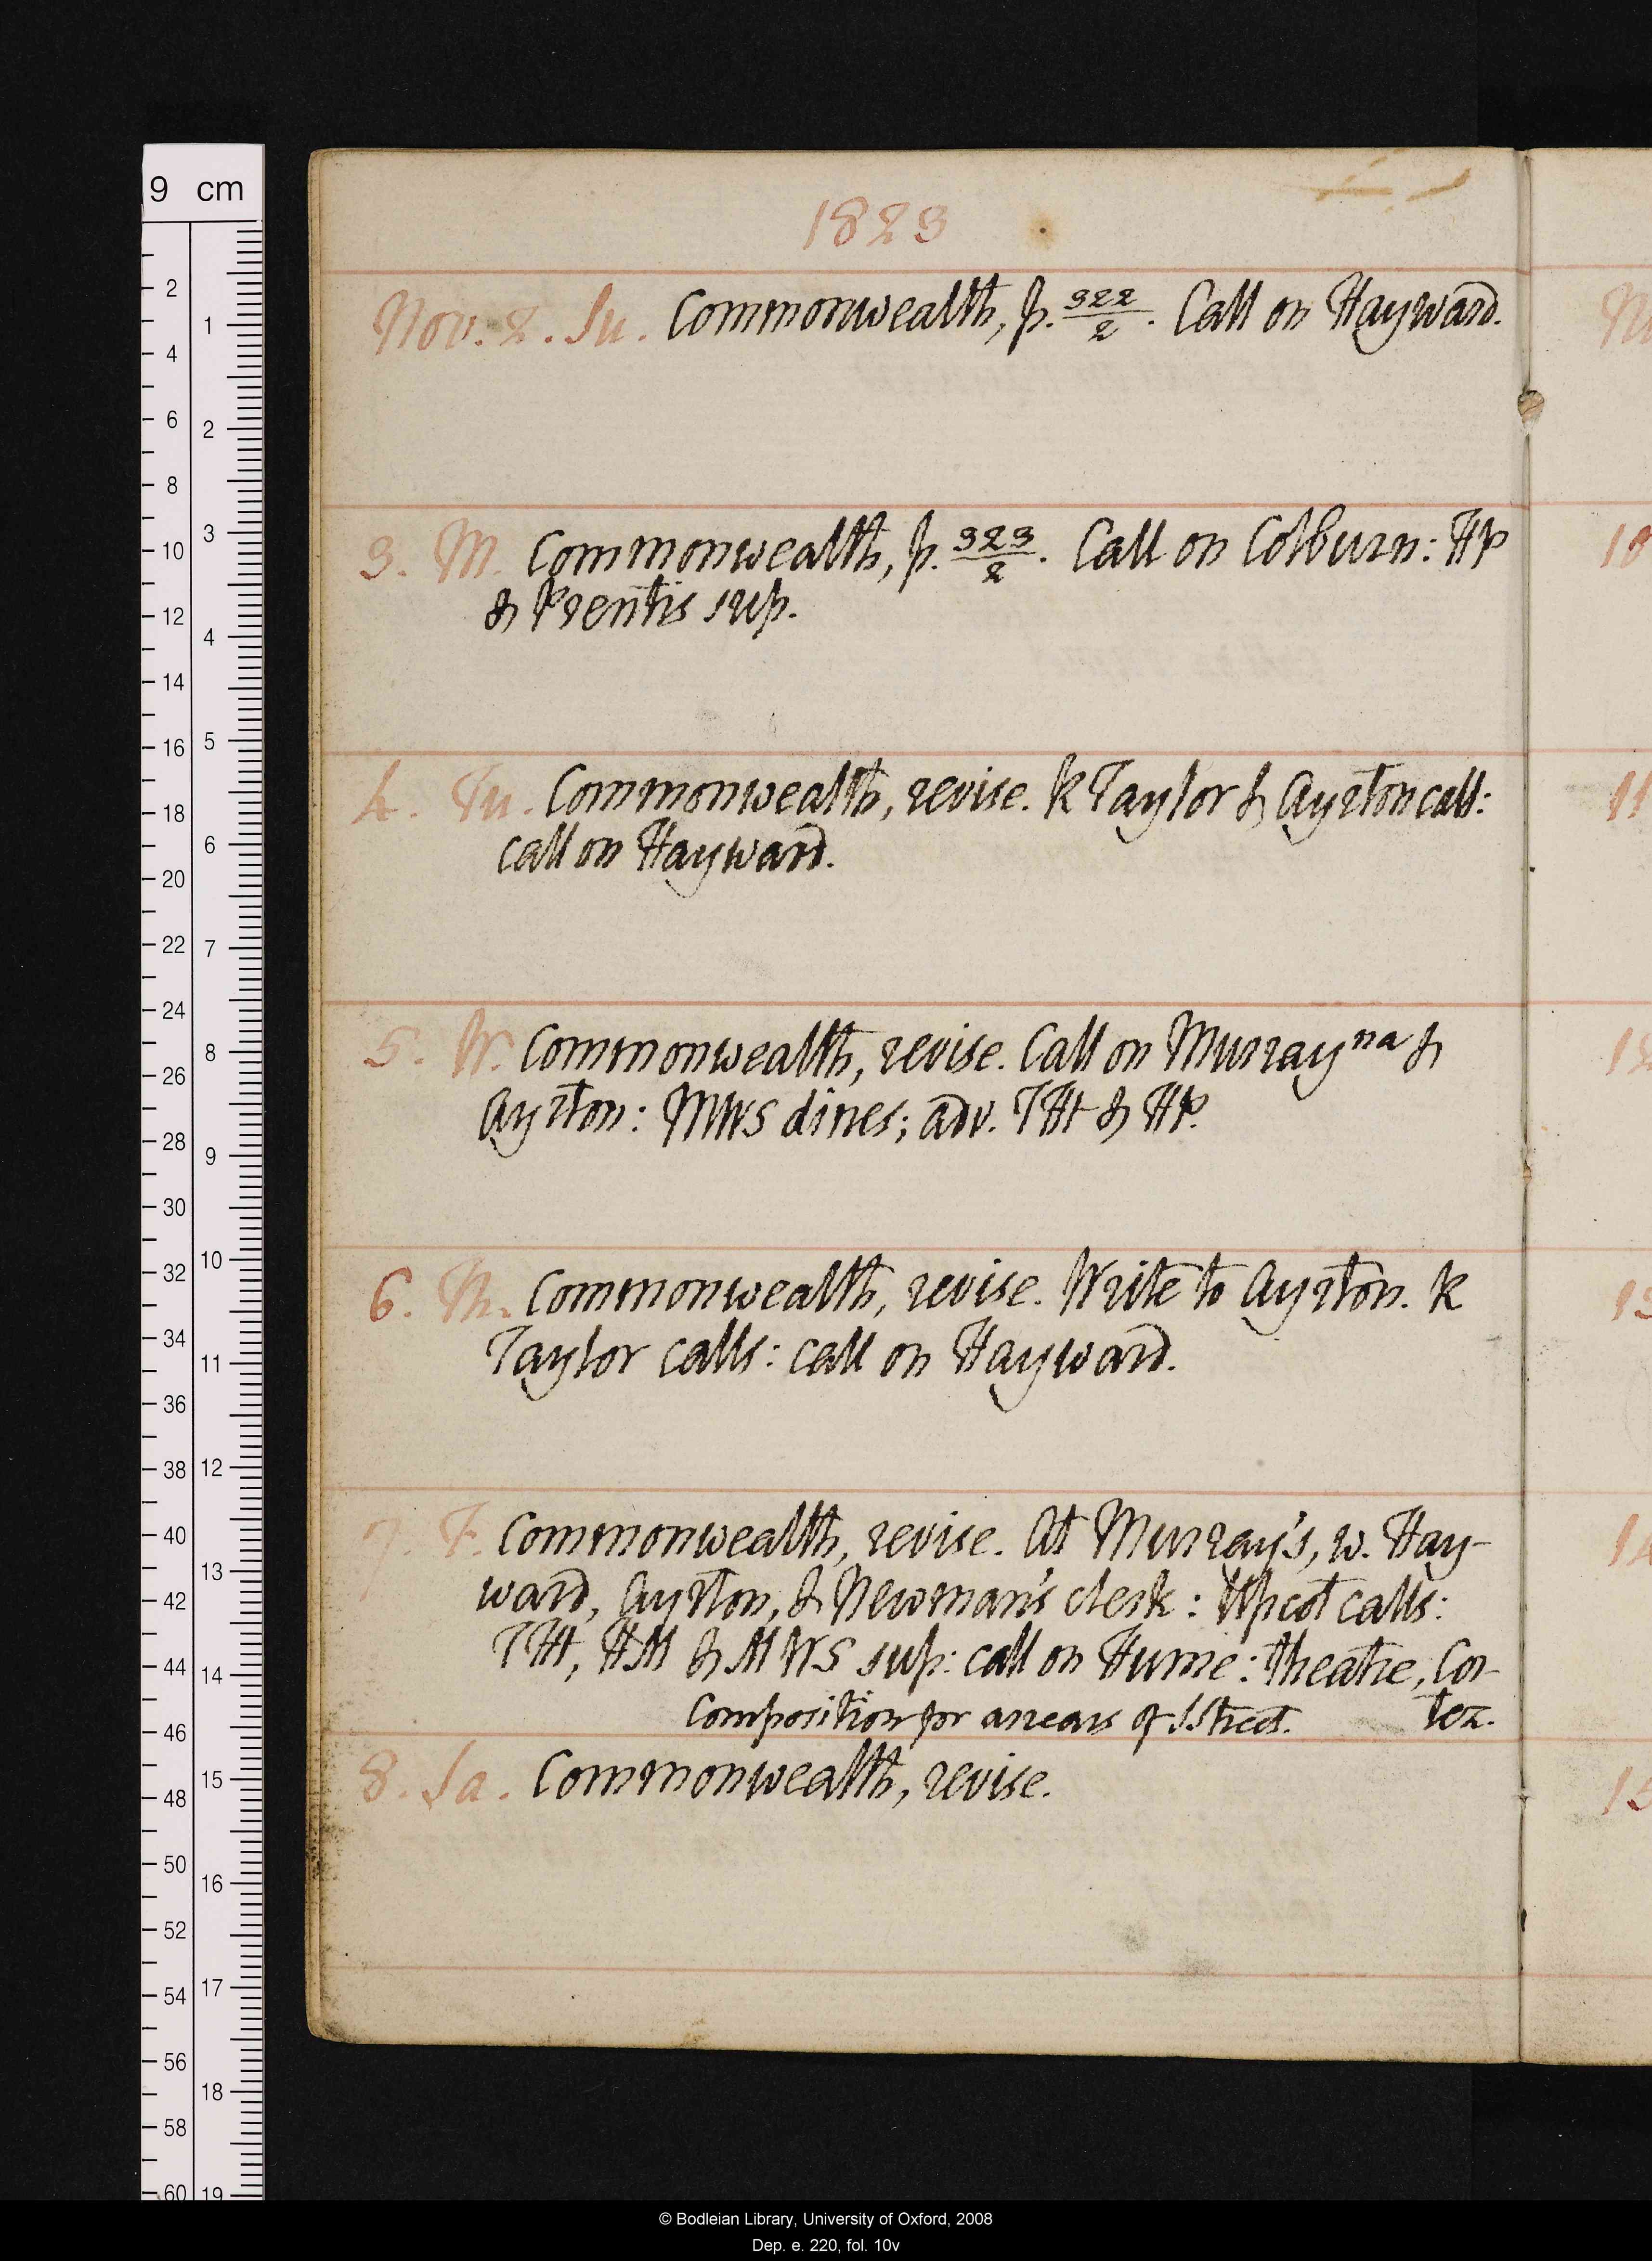 1823
Nov. 2. Su. Commonwealth, p. 322/2. Call on Hayward.
3. M. Commonwealth, p. 323/2. Call on Colburn: HP
& Prentis sup.
4. Tu. Commonwealth, revise. K Taylor & Ayrton call:
call on Hayward.
5. W. Commonwealth, revise. Call on Murray na &
Ayrton: MWS dines; adv. THt & HP.
6. Th. Commonwealth, revise. Write to Ayrton. K
Taylor calls: call on Hayward.
7. F. Commonwealth, revise. At Murray's, w. Hay-
ward, Ayrton, & Newman's clerk: Upcot calls:
THt, HM & MWS sup: call on Hume: theatre, Cor-
tez.
Composition for arrears of S Street.
8. Sa. Commonwealth, revise.
10
11
9 cm
2
4
6
8
10
12
14
16
18
20
22
24
26
28
30
32
34
36
38
40
42
44
46
48
50
52
54
56
58
60
1
2
3
4
5
6
7
8
9
10
11
12
13
14
15
16
17
18
19
© Bodleian Library, University of Oxford, 2008
Dep. e. 220, fol. 10v